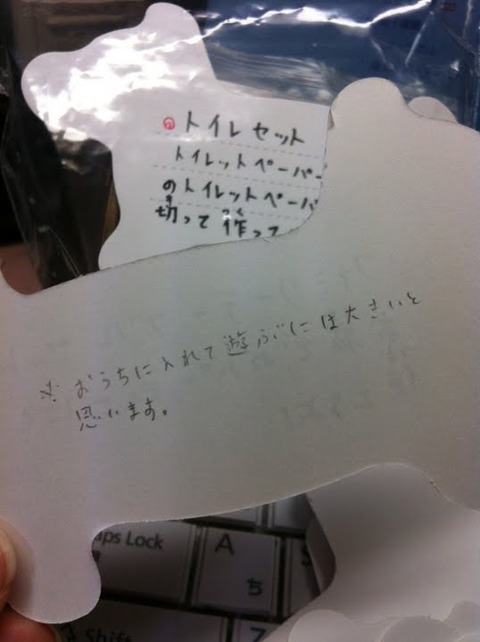 の トイレセット
トイレットペーパー
のトイレットペーパ
切って作って
※おうちに入れて遊ぶには大きいと
思います。
aps Lock
A
ち
Shift
Z